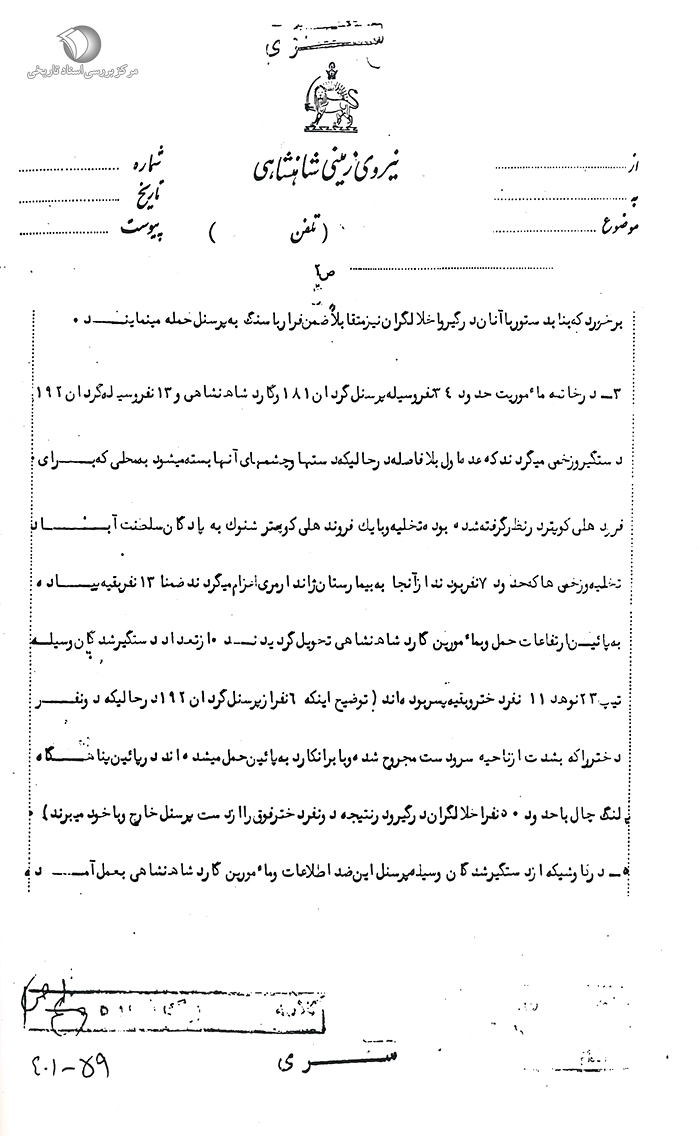 مرکز بررسی اسناد تاریخی
سری
نیروی زمینی شاهنشاهی
از
به
موضوع
شماره
تاریخ
پیوست
( تلفن )
ص۲
برخورد که بنا بدستور با آنان درگیر و اخلالگران نیز متقابلاً ضمن فرار با سنگ به پرسنل حمله مینماینـــد ۰
۳ـ در خاتمه مأموریت حدود ۳۴ نفر وسیله پرسنل گردان ۱۸۱ و گارد شاهنشاهی و ۱۳ نفر وسیله گردان ۱۹۲
دستگیر و زخمی میگردند که عده اول بلافاصله در حالیکه دستها و چشمهای آنها بسته میشود به محلی که بـــرای
فرود هلی کوپتر در نظر گرفته شده بوده تخلیه و با یک فروند هلی کوپتر شنوک به پادگان سلطنت آبـــاد
تخلیه و زخمی ها که حدود ۷ نفر بودند از آنجا به بیمارستان ژاندارمری اعزام میگردند ضمنا ۱۳ نفر بقیه پیـــاده
به پائیـن ارتفاعات حمل و بمأمورین گارد شاهنشاهی تحویل گردیدنـــد ۰ از تعداد دستگیرشدگان وسیلـه
تیپ ۲۳ نوهد ۱۱ نفر دختر و بقیه پسر بوده اند ( توضیح اینکه ۶ نفر از پرسنل گردان ۱۹۲ در حالیکه دو نفـــر
دختر را که بشدت از ناحیه سر و دست مجروح شده و با برانکارد به پائین حمل میشده اند در پائین پناهـــگاه
پلنگ چال با حدود ۵۰ نفر اخلالگران درگیر و در نتیجه دو نفر دختر فوق را از دست پرسنل خارج و با خود میبرند ) ۰
۵ـ در کاوشیکه از دستگیرشدگان وسیله پرسنل این ضد اطلاعات و مأمورین گارد شاهنشاهی بعمل آمـــده
سری
۴۰۱-۵۹